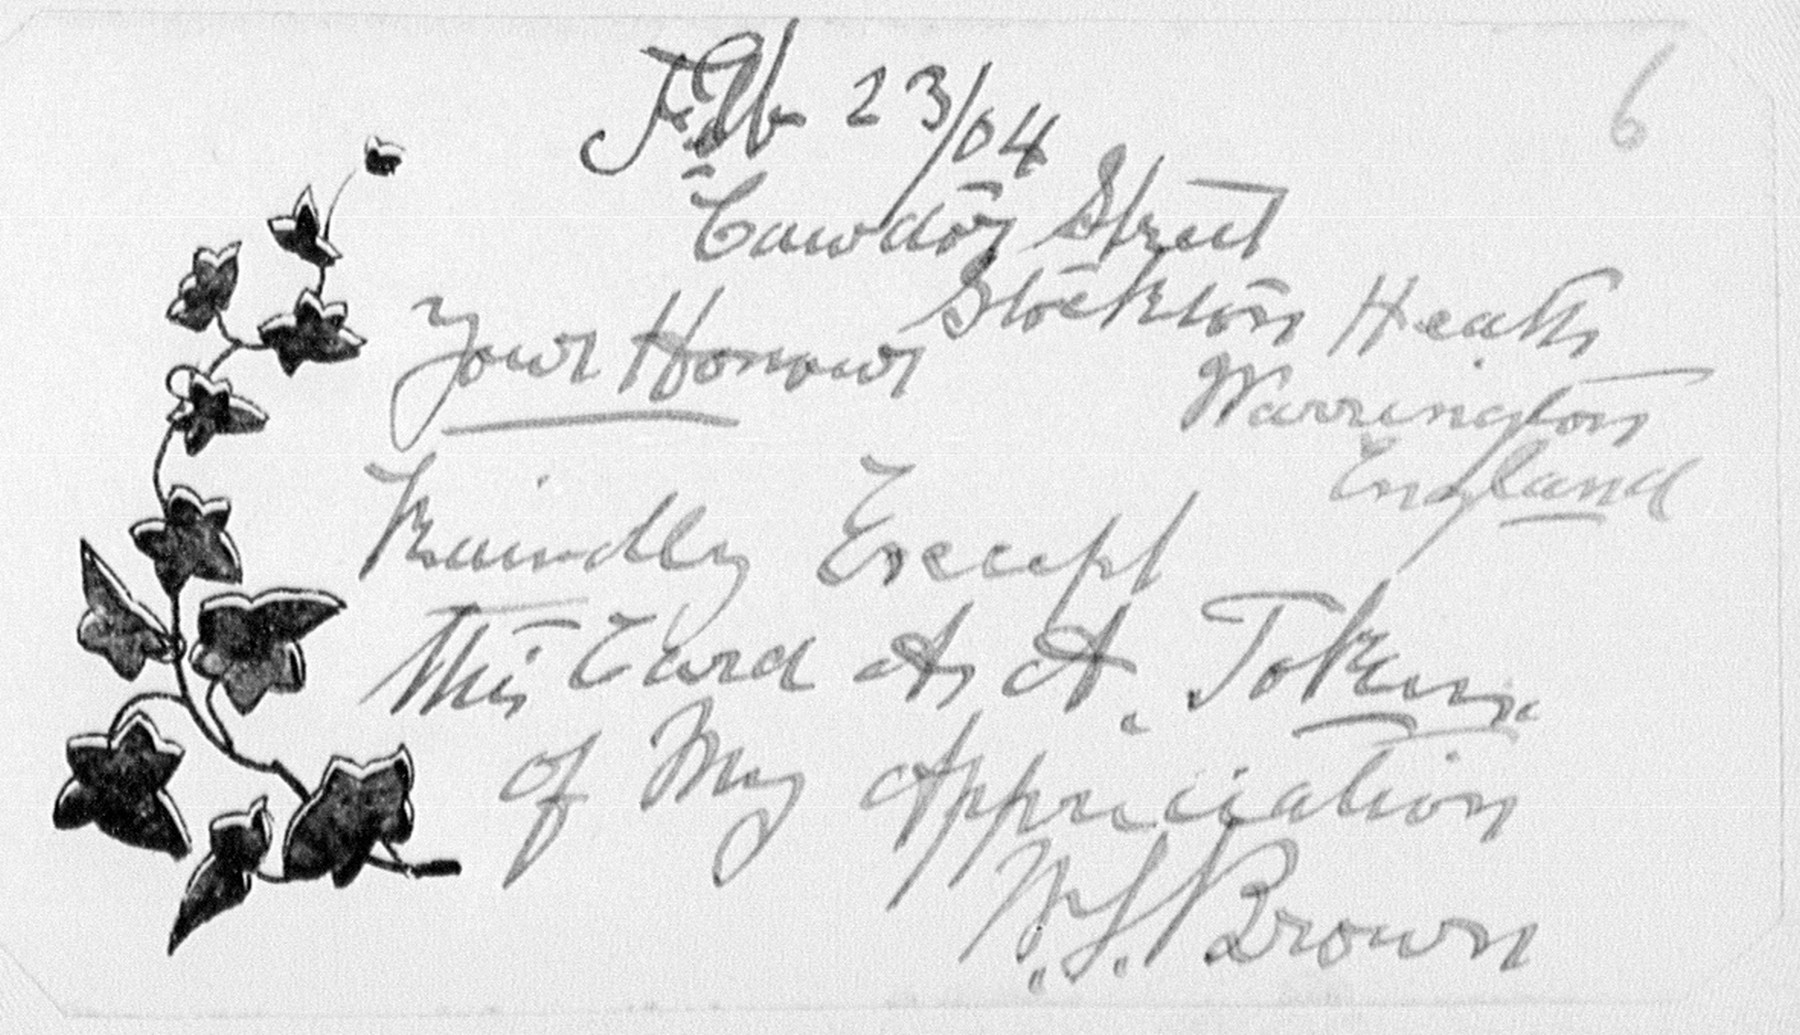 6
Feb 23/04
Cawdor Street
Stockton Heath
Warrington
England
Your Honour
Kaindly Except
this Card As A Token
of My Appriciation
Brown